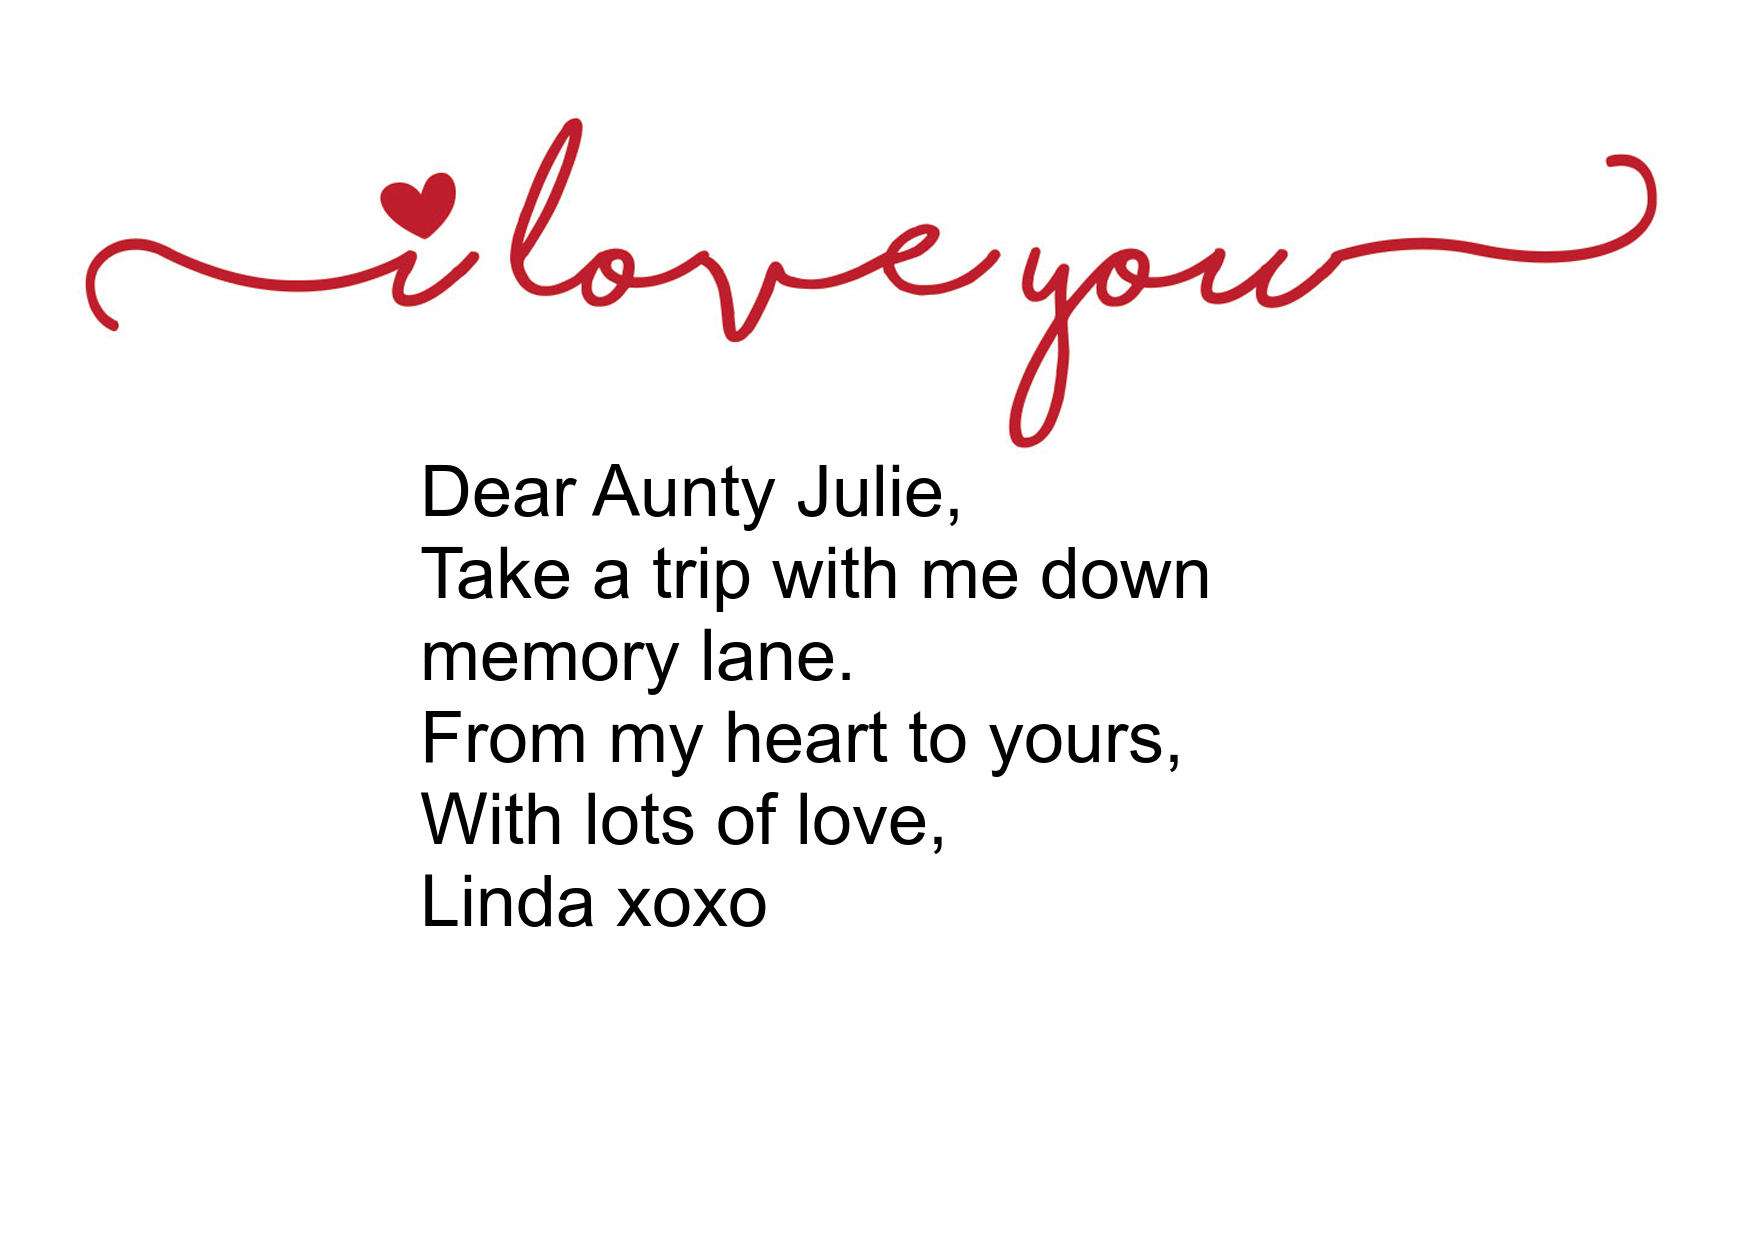 i love you
Dear Aunty Julie,
Take a trip with me down
memory lane.
From my heart to yours,
With lots of love,
Linda xoxo